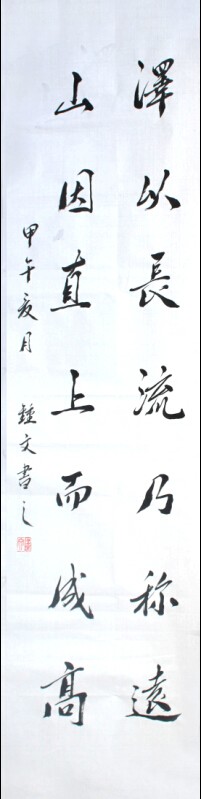 澤以長流乃称遠
山因直上而成高
甲午夏月 鍾文書之